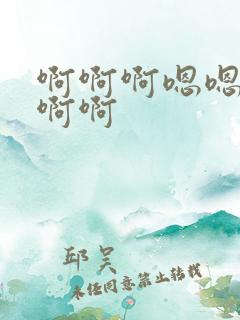 啊啊啊嗯嗯
啊啊
邱吴
未经同意禁止转载